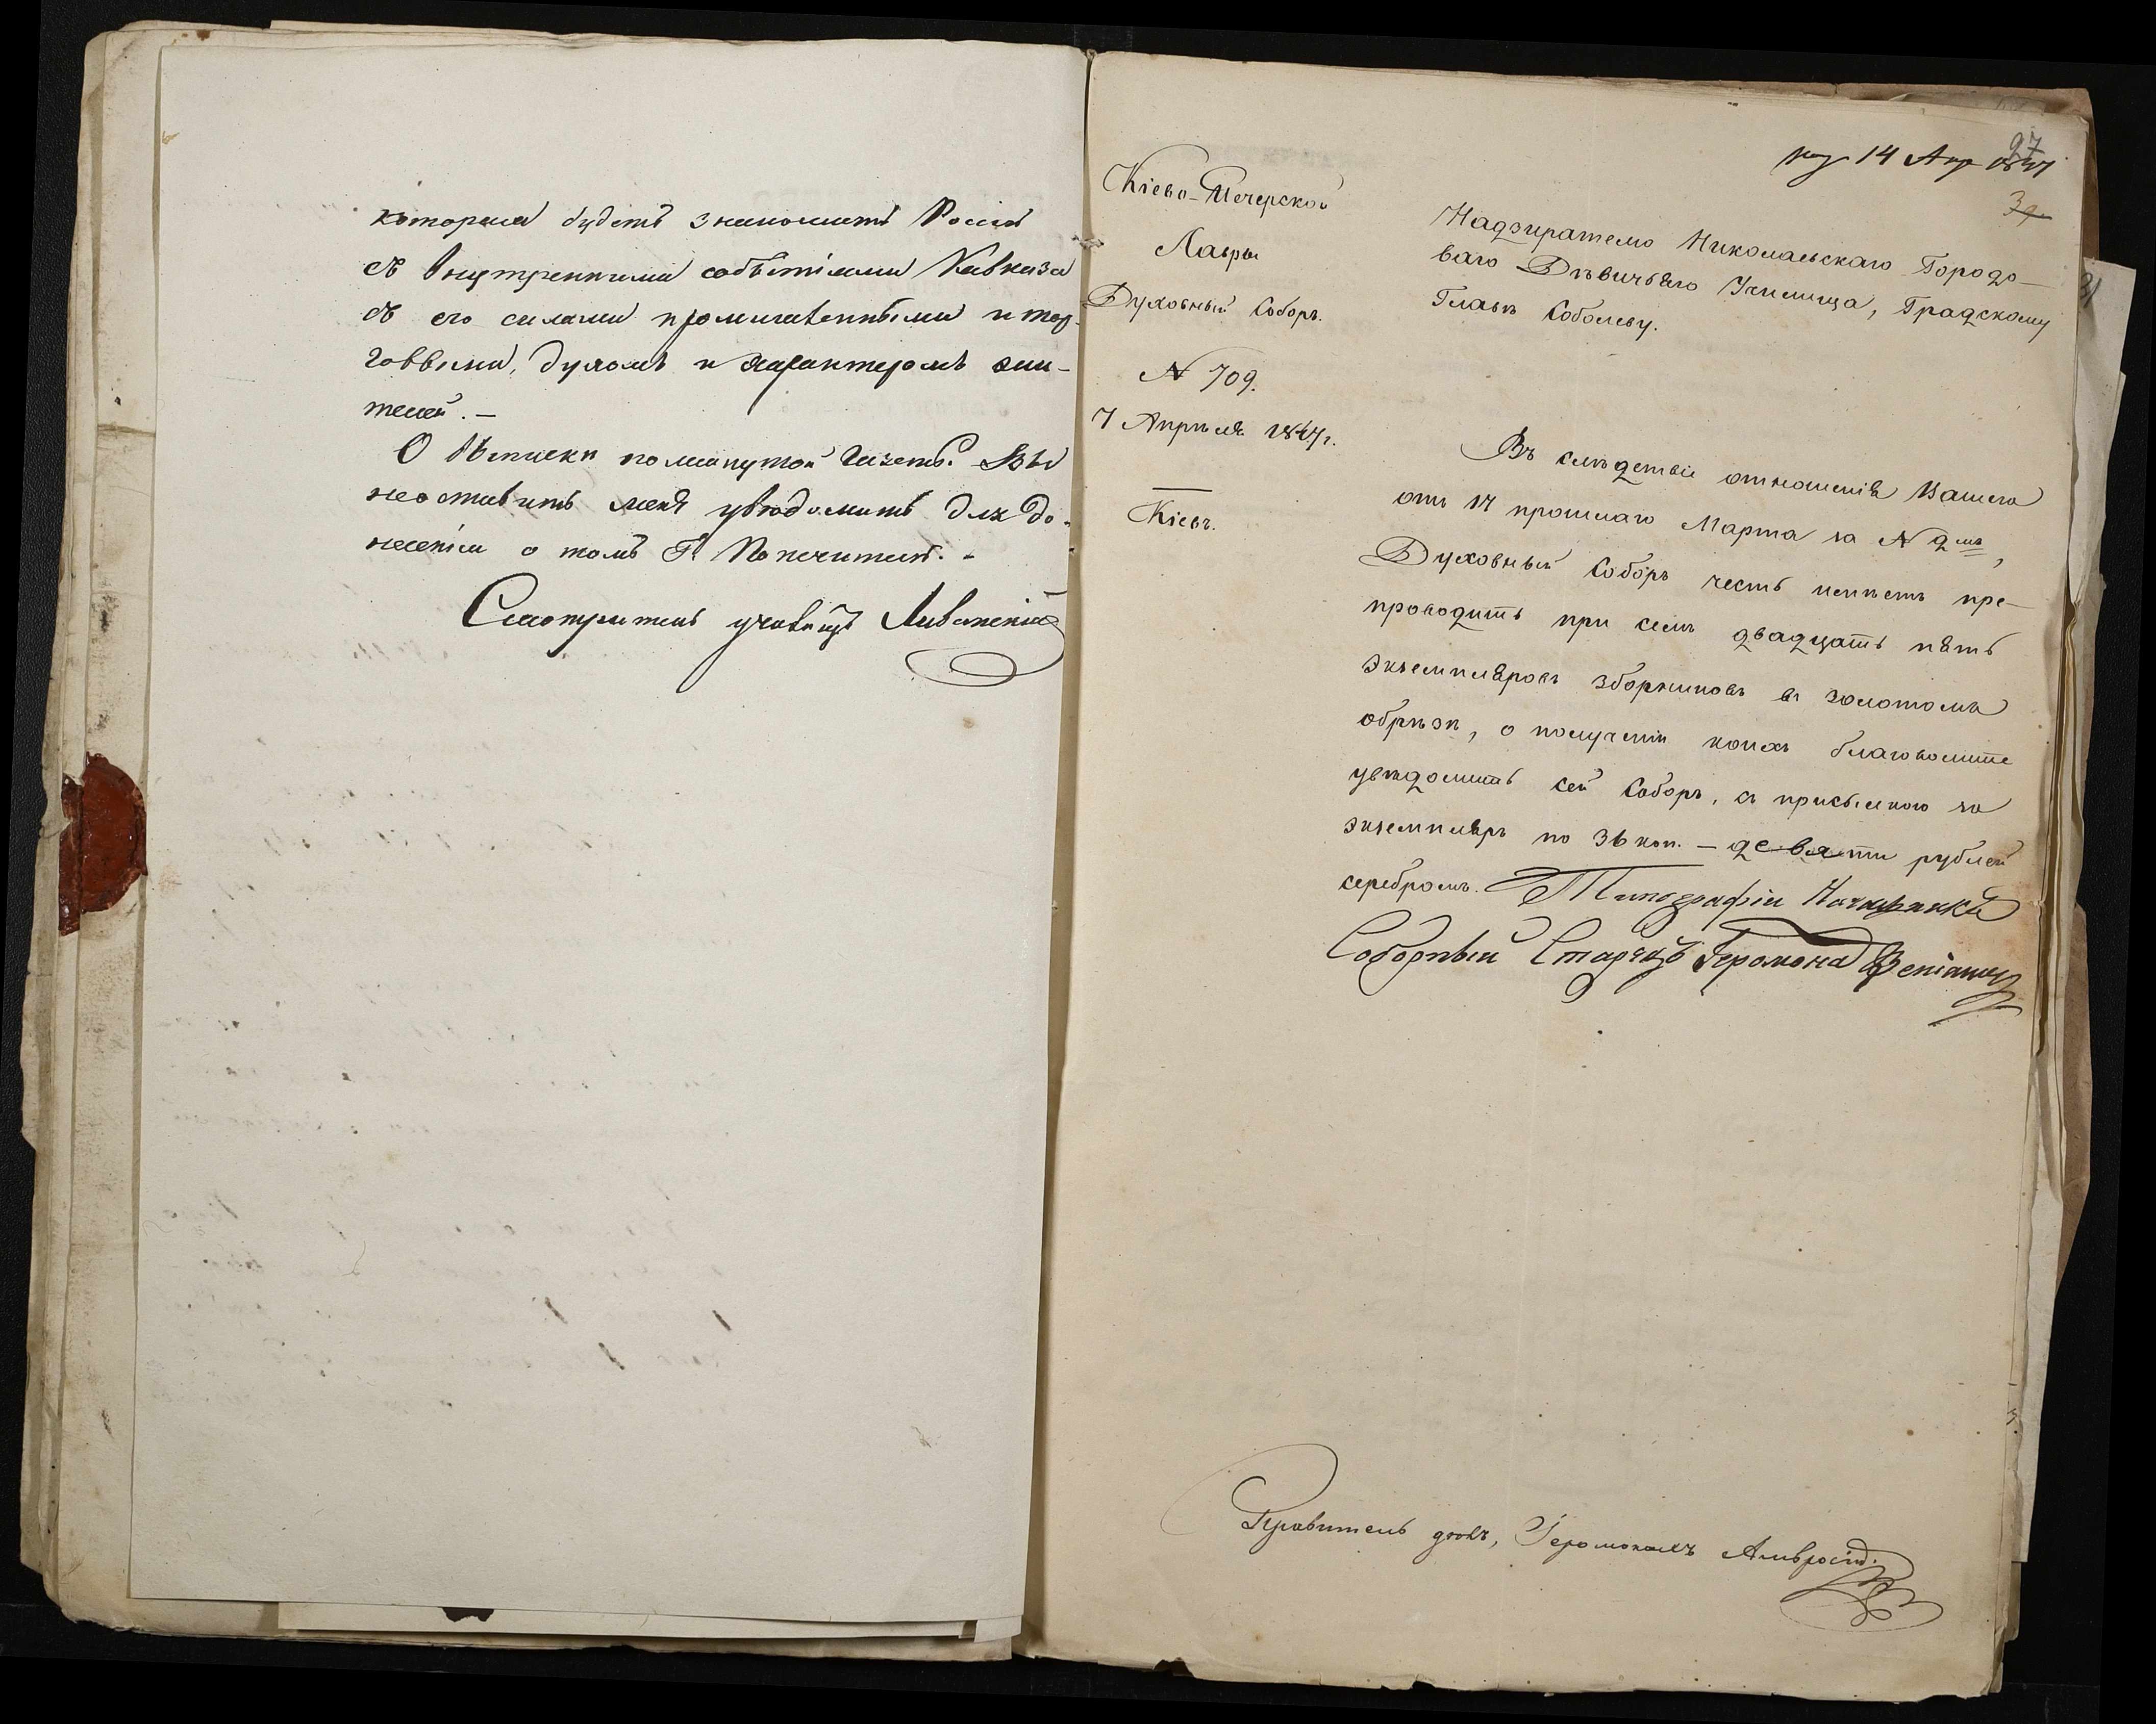 которая будетъ знакомить Россію
съ внутренними событіями Кавказа
съ его силами промышленными и тор-
говыми, духомъ и характеромъ жи-
телей. —
О выписки помянутой Газеты Вы
неоставить меня увѣдомить для до-
несенія о томъ Г. Попечителю. -
Смотритель училищъ
27
пол 14 Апр 1847
Кіево-Печерской
Лавры
Духовный Соборъ.
N 709.
7 Апрѣля 1847 г.
Кіевъ.
Надзирателю Николаевскаго Городо-
ваго Дѣвичьяго Училища, Градскому
Главѣ Соболеву.
Въ слѣдствіе отношенія Вашего
отъ 17 прошлаго Марта за N 2мъ,
Духовный Соборъ честь имѣетъ пре-
проводить при семъ двадцать пять
экземпляровъ зборниковъ въ золотомъ
обрѣзѣ, о полученіи коихъ благоволите
увѣдомить сей Соборъ, съ присылкою за
экземпляръ по 36 коп. — девяти рублей
серебромъ. Типографіи Начальникъ
Соборный Старецъ Іеромона Веніаминъ
Правитель дѣлъ, Іеромонахъ Амвросій.